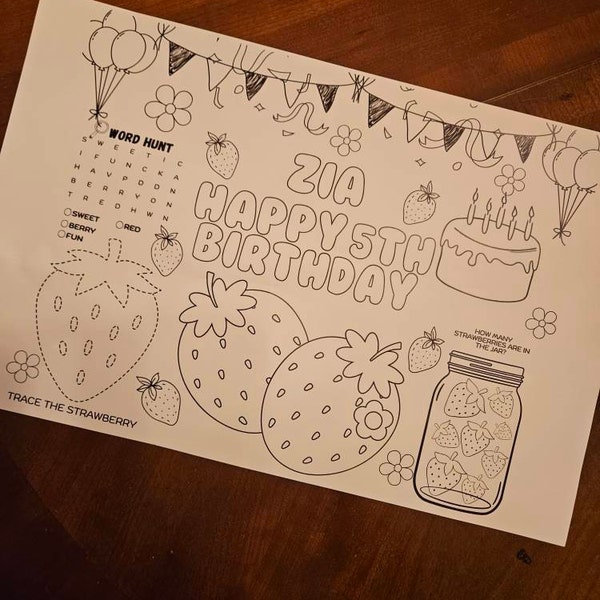 WORD HUNT
S W E E T I C
I F U N C K A
H A V P D D N
B E R R Y O N
T R E D H W N
SWEET
RED
BERRY
FUN
ZIA
HAPPY 5TH
BIRTHDAY
HOW MANY
STRAWBERRIES ARE IN
THE JAR?
TRACE THE STRAWBERRY